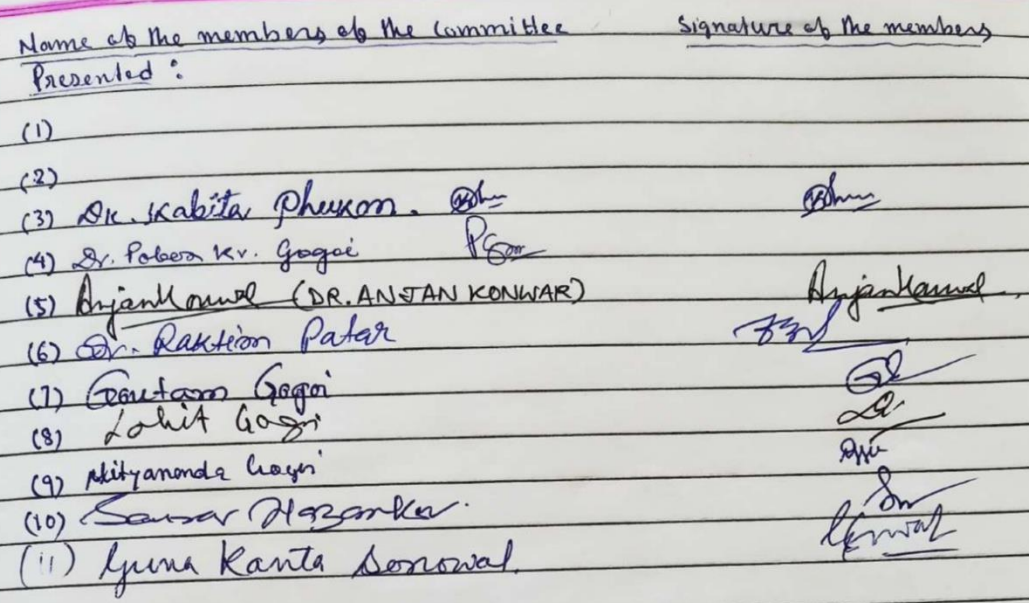 Name of the members of the Committee Signature of the members
Presented :
(1)
(2)
(3) Dr. Kabita Phukon.
(4) Dr. Poben Kr. Gogoi
(5) Anjan Konwar (DR. ANJAN KONWAR) Anjan Konwar
(6) Dr. Raktim Patar
(7) Goutam Gogoi
(8) Lohit Gogoi
(9) Nityananda Gogoi
(10) Hazarika
(11) Guna Kanta Sonowal.